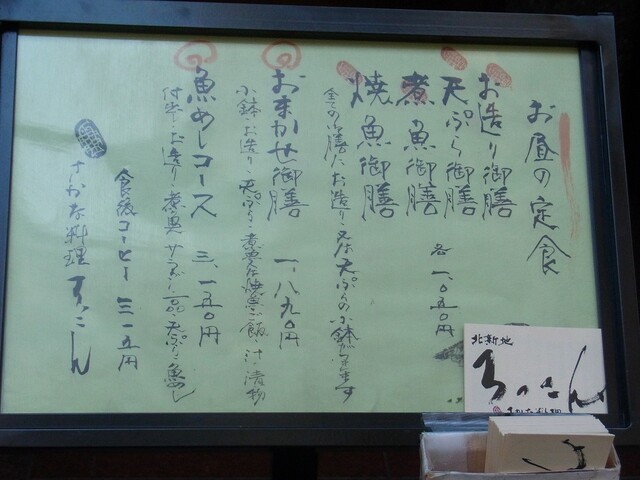 お昼の定食
お造り御膳
天ぷら御膳
煮魚御膳
焼魚御膳
各一、〇五〇円
全ての御膳にお造り又は天ぷらの小鉢が付きます
おまかせ御膳 一、八九〇円
小鉢・お造り・天ぷら・煮魚又は焼魚・ご飯・汁・漬物
魚めしコース 三、一五〇円
付出し・お造り・煮魚・サラダ・一品・天ぷら・魚めし
食後コーヒー 三一五円
さかな料理
北新地